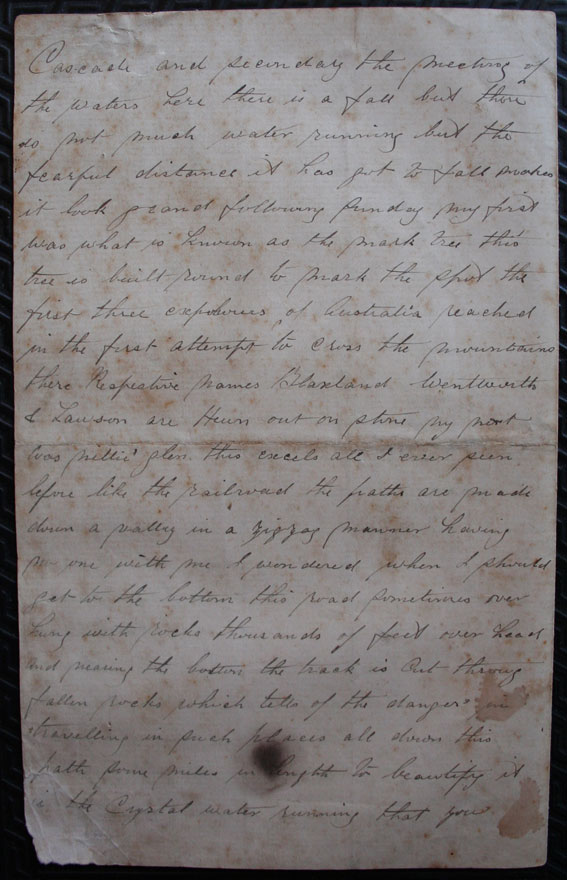 Cascade and secondly the meeting of
the waters here there is a fall but there
is not much water running but the
fearful distance it has got to fall makes
it look grand following Sunday my first
was what is known as the mark tree this
tree is built round to mark the spot the
first three explorers of Australia reached
in the first attempt to cross the mountains
there Respective names Blaxland Wentworth
& Lawson are Hewn out on stone my next
was nellie' glen this excels all I ever seen
before like the railroad the paths are made
down a valley in a zigzag manner having
no one with me I wondered when I should
get to the bottom this road sometimes over
hung with rocks thousands of feet over head
and nearing the bottom the track is Cut through
fallen rocks which tells of the danger in
travelling in such places all down this
path some miles in length to beautify it
is the Crystal water running that you